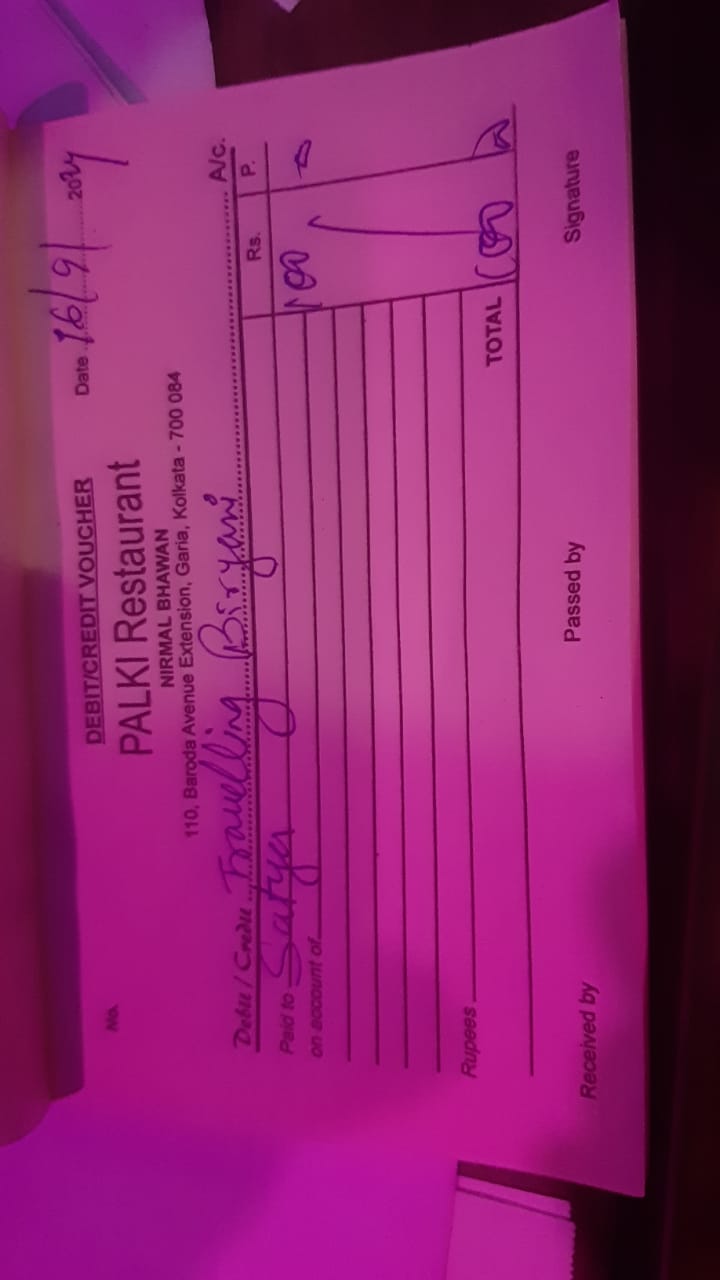 No.
DEBIT/CREDIT VOUCHER
Date 16/9/ 2024
PALKI Restaurant
NIRMAL BHAWAN
110, Baroda Avenue Extension, Garia, Kolkata - 700 084
Debit / Credit Travelling Biryani A/c.
Rs. P.
Paid to Satya 100
on account of
TOTAL 100
Rupees
Received by Passed by Signature